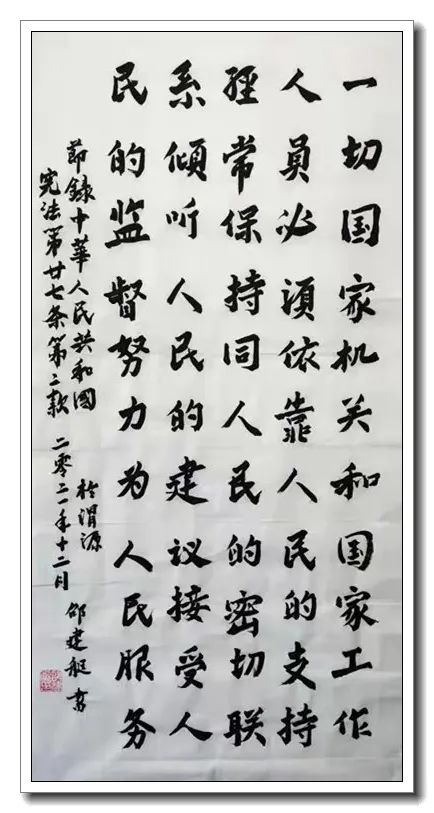 一切国家机关和国家工作
人員必須依靠人民的支持
經常保持同人民的密切联
系傾听人民的建议接受人
民的监督努力为人民服务
節錄中華人民共和國
宪法第廿七条第二款
於渭源
二零二一年十二月 邵建艇書